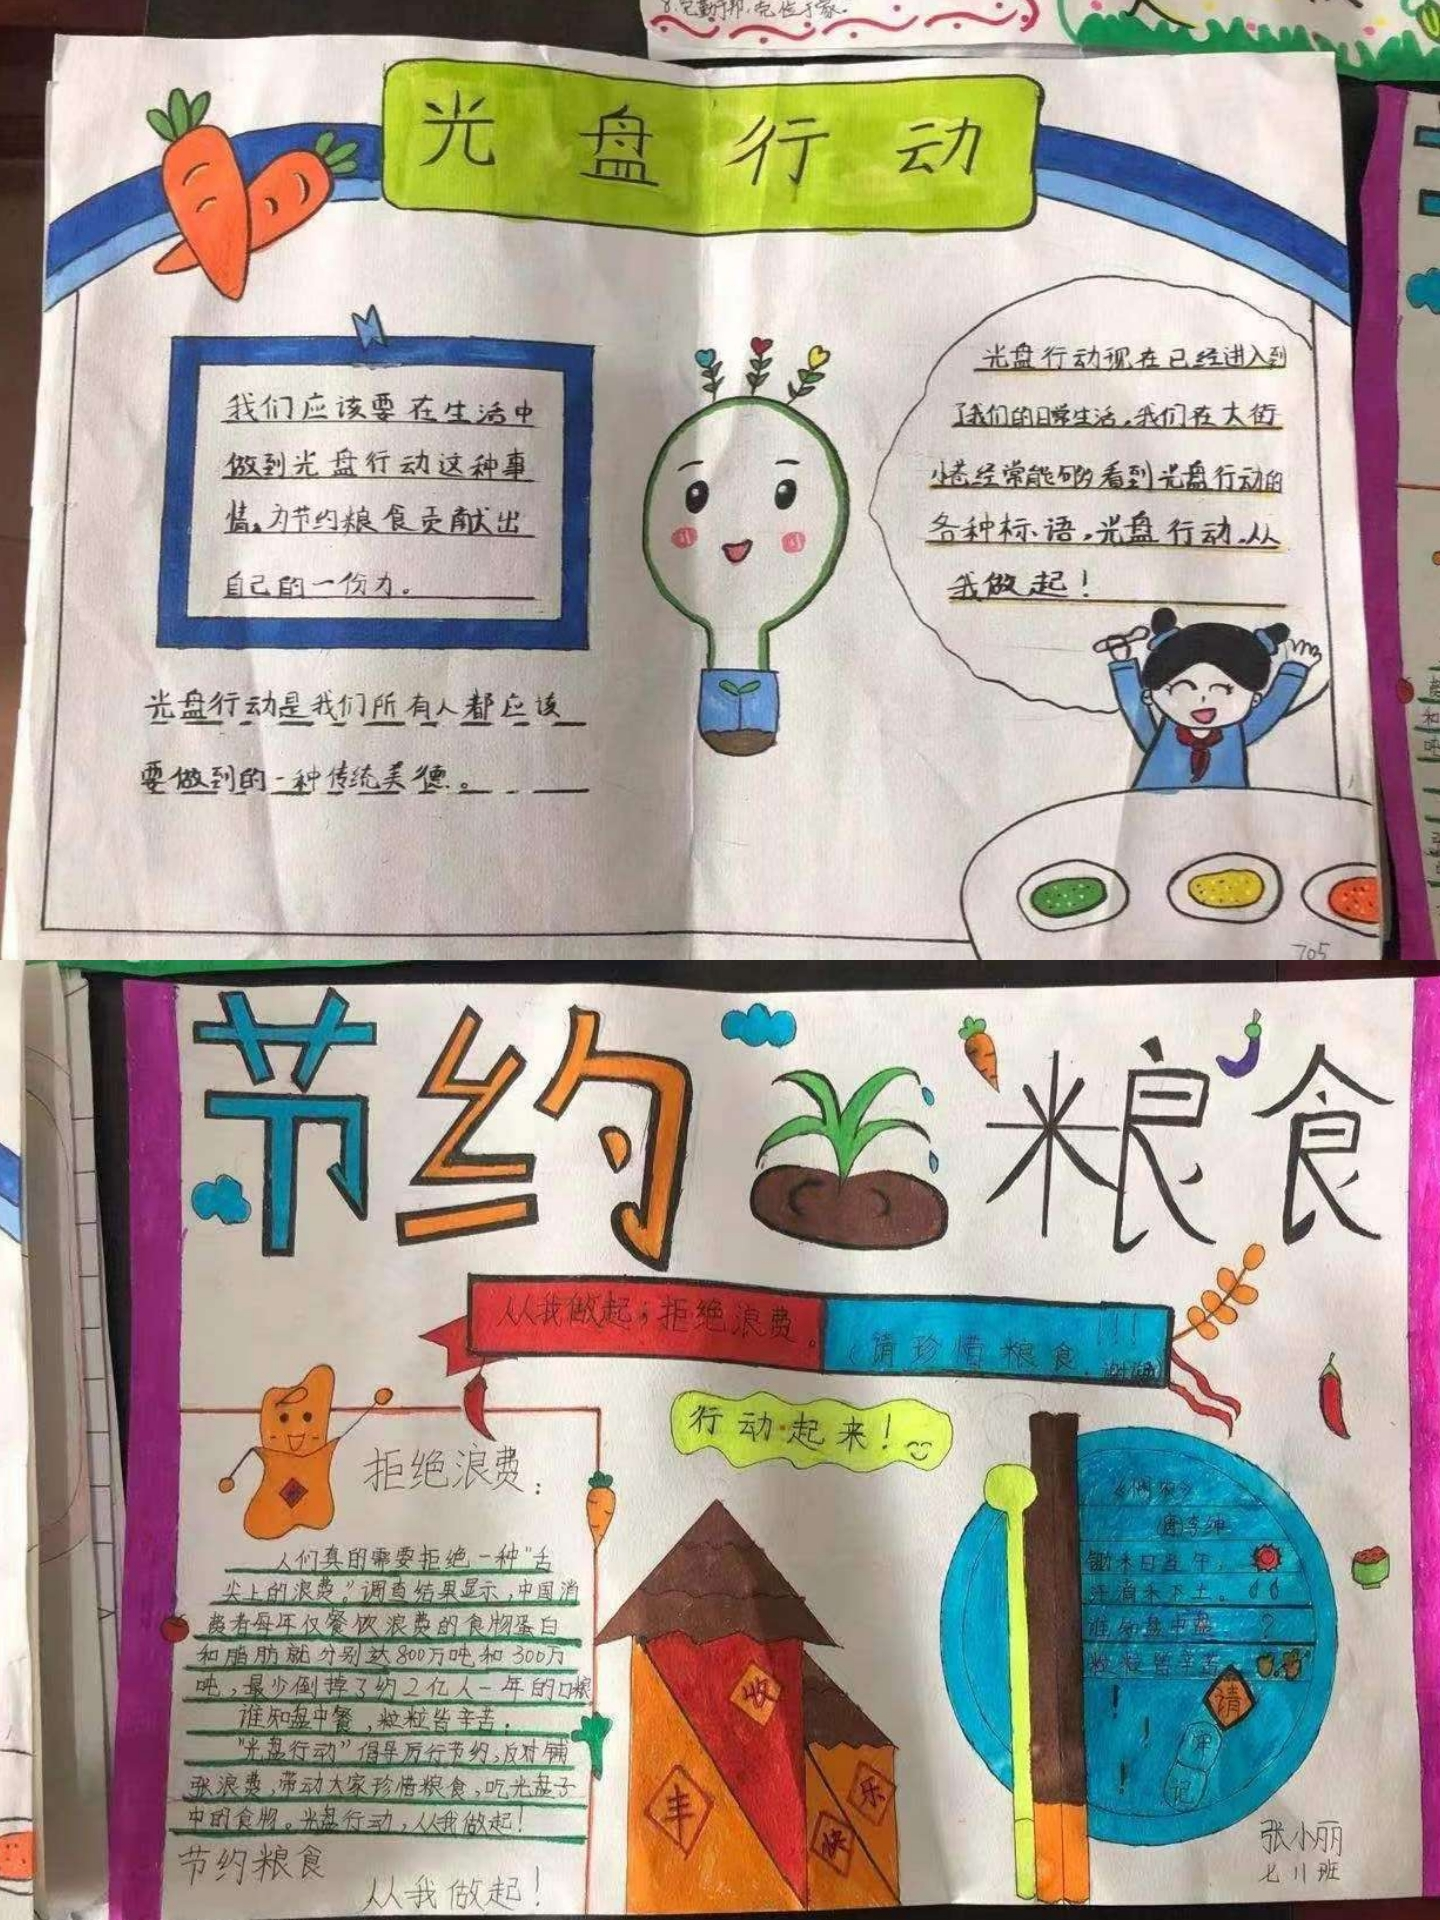 光盘行动
我们应该要在生活中
做到光盘行动这种事
情,为节约粮食贡献出
自己的一份力。
光盘行动是我们所有人都应该
要做到的一种传统美德。
光盘行动现在已经进入到
了我们的日常生活,我们在大街
小巷经常能够看到光盘行动的
各种标语,光盘行动,从
我做起!
705
节约粮食
从我做起;拒绝浪费。
请珍惜粮食
!!!
行动起来!
拒绝浪费:
人们真的需要拒绝一种"舌
尖上的浪费。"调查结果显示,中国消
费者每年仅餐饮浪费的食物蛋白
和脂肪就分别达800万吨和300万
吨,最少倒掉了约2亿人一年的口粮
谁知盘中餐,粒粒皆辛苦。
"光盘行动"倡导厉行节约,反对铺
张浪费,带动大家珍惜粮食,吃光盘子
中的食物。光盘行动,从我做起!
节约粮食
从我做起!
丰
收
快
乐
《悯农》
(唐)李绅
锄禾日当午,
汗滴禾下土。
谁知盘中
?
粒粒皆辛苦
!
!
!
请
牢
记
张小丽
七11班